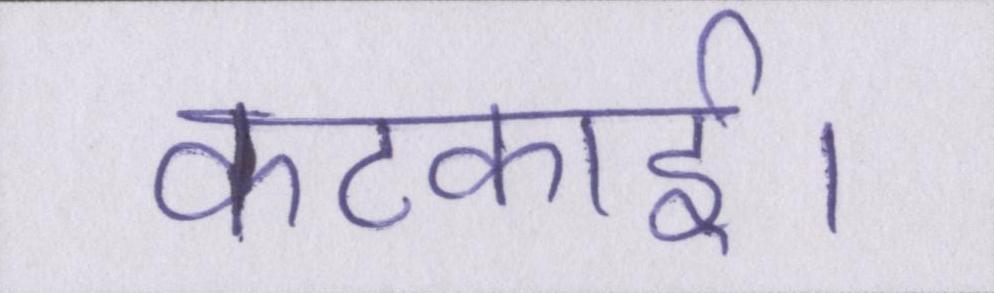 कटकाई।